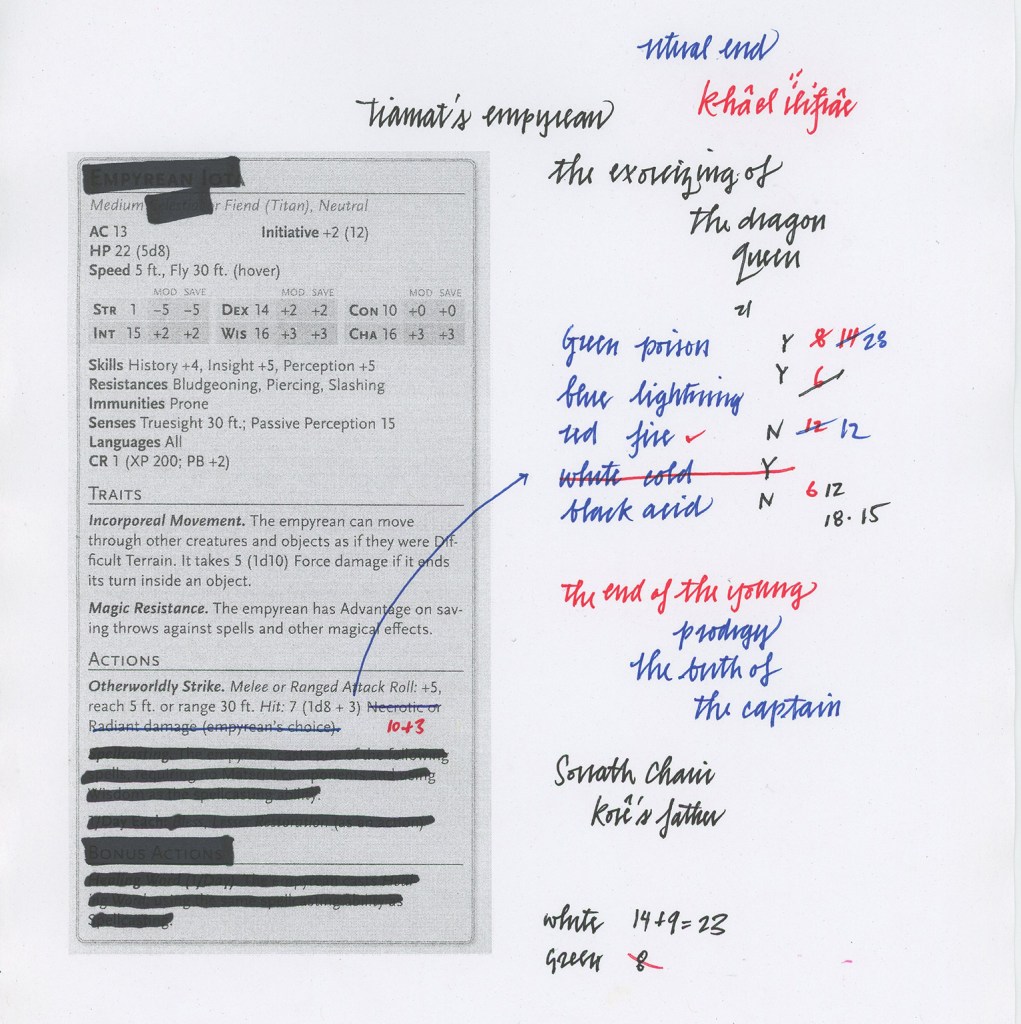 ritual end
khâel ilifrâe
Tiamat's empyrean
EMPYREAN IOTA
Medium or Fiend (Titan), Neutral
AC 13 Initiative +2 (12)
HP 22 (5d8)
Speed 5 ft., Fly 30 ft. (hover)
MOD SAVE MOD SAVE MOD SAVE
STR 1 −5 −5 DEX 14 +2 +2 CON 10 +0 +0
INT 15 +2 +2 WIS 16 +3 +3 CHA 16 +3 +3
Skills History +4, Insight +5, Perception +5
Resistances Bludgeoning, Piercing, Slashing
Immunities Prone
Senses Truesight 30 ft.; Passive Perception 15
Languages All
CR 1 (XP 200; PB +2)
TRAITS
Incorporeal Movement. The empyrean can move
through other creatures and objects as if they were Dif-
ficult Terrain. It takes 5 (1d10) Force damage if it ends
its turn inside an object.
Magic Resistance. The empyrean has Advantage on sav-
ing throws against spells and other magical effects.
ACTIONS
Otherworldly Strike. Melee or Ranged Attack Roll: +5,
reach 5 ft. or range 30 ft. Hit: 7 (1d8 + 3) Necrotic or
Radiant damage (empyrean's choice).
10+3
BONUS ACTIONS
the exorcizing of
the dragon
queen
21
Green poison Y 8 14 23
blue lightning Y 6
red fire ✓ N 12 12
white cold Y
black acid N 6 12
18 · 15
the end of the young
prodigy
the birth of
the captain
Sorrath Chair
Korê's father
white 14+9=23
green 8